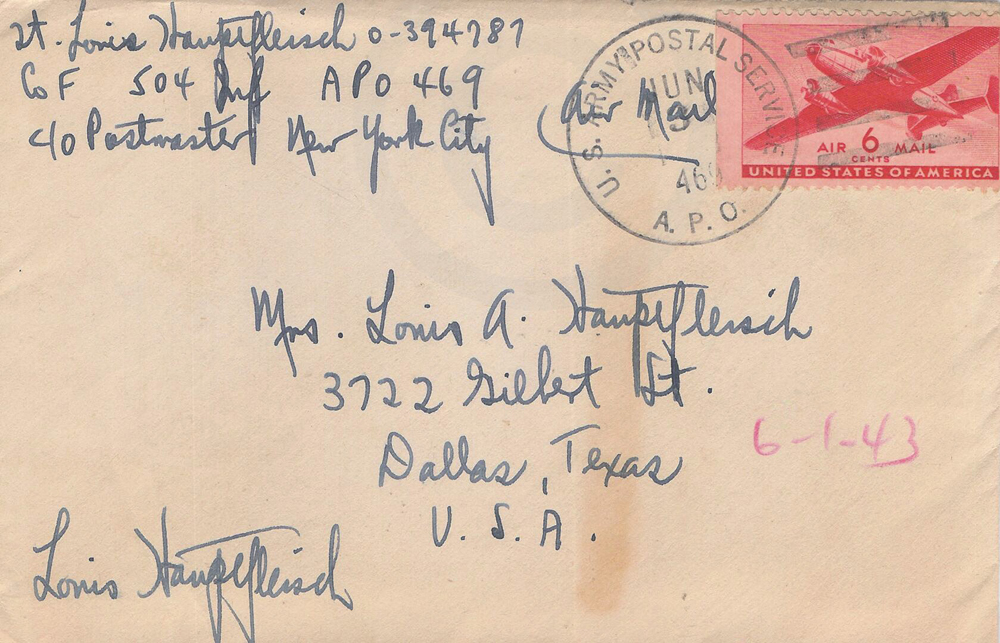 Lt. Louis Hauptfleisch O-394787
Co F 504 Inf APO 469
c/o Postmaster New York City
Air Mail
U. S. ARMY POSTAL SERVICE
JUN
469
A. P. O.
AIR 6 MAIL
CENTS
UNITED STATES OF AMERICA
Mrs. Louis A. Hauptfleisch
3722 Gilbert St.
Dallas, Texas
U. S. A.
6-1-43
Louis Hauptfleisch